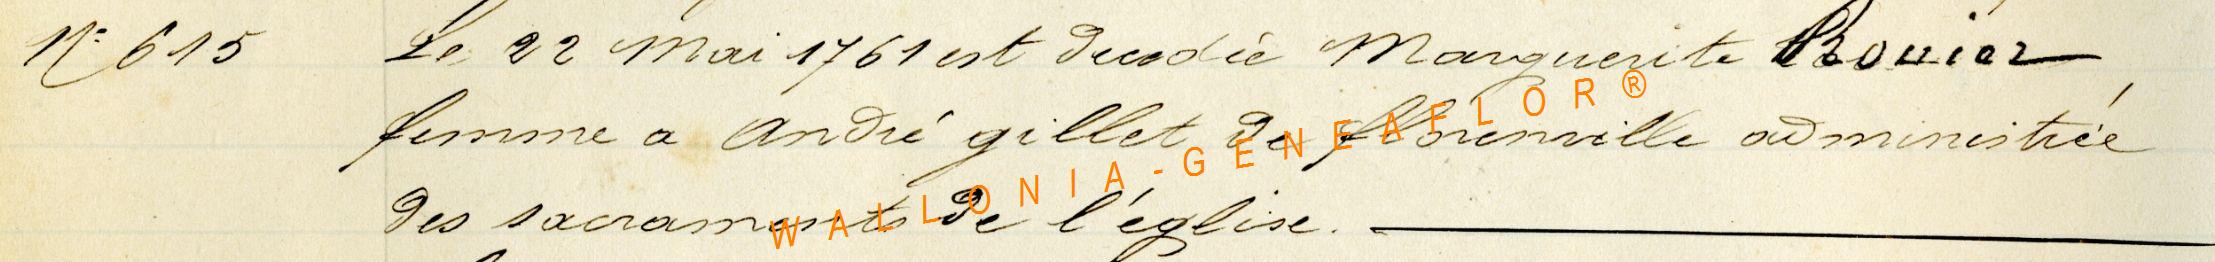 N° 615 Le 22 Mai 1761 est decedée Marguerite Rouier
femme a andré gillet de florenville administrée
des sacraments de l'église.
WALLONIA-GENEAFLOR®